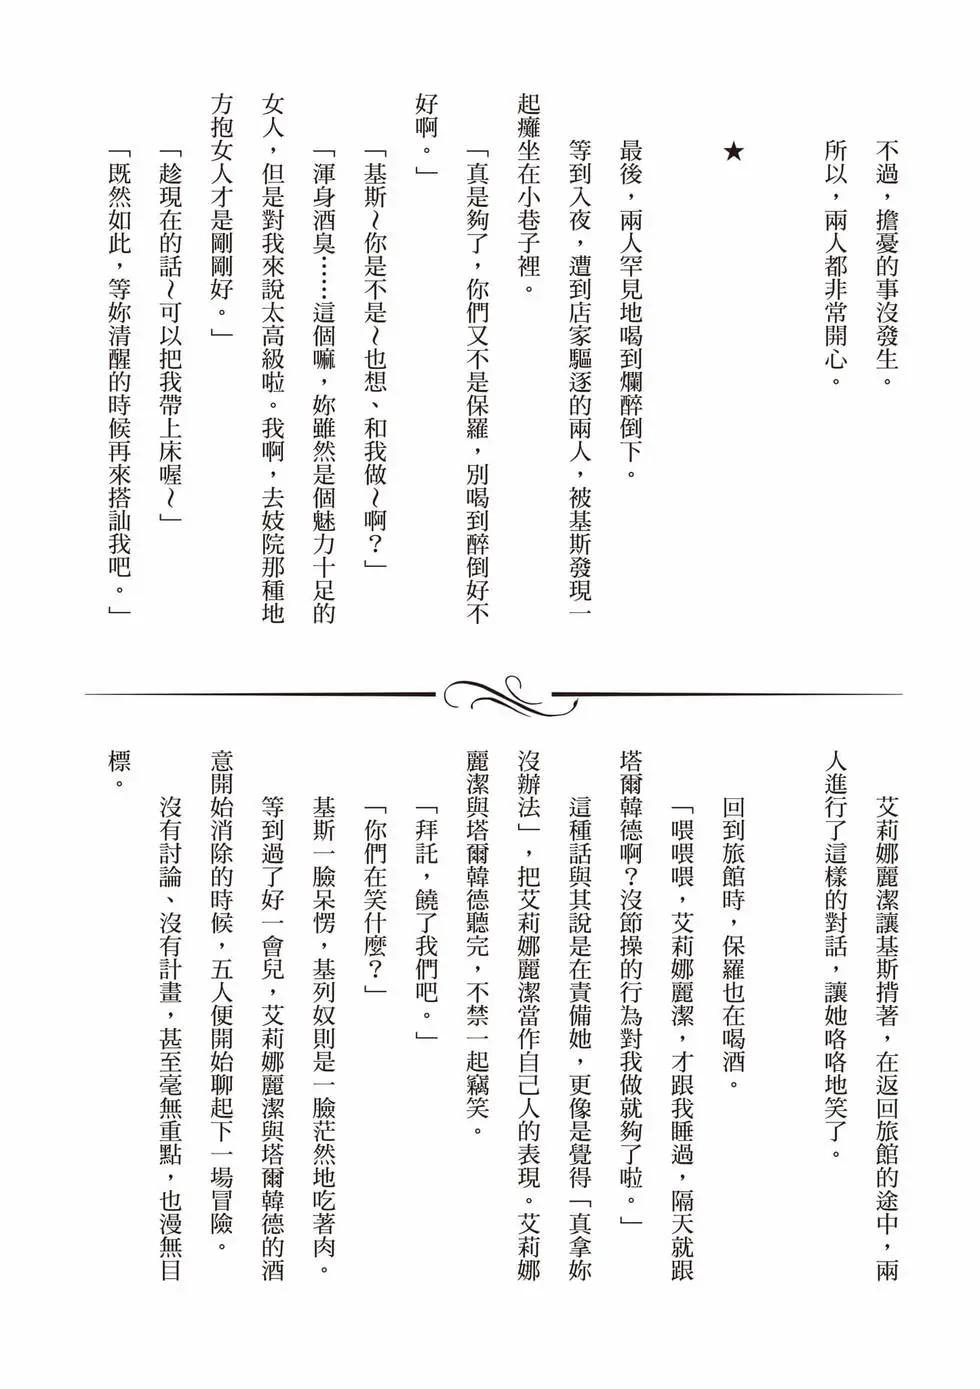 不過，擔憂的事沒發生。
所以，兩人都非常開心。
★
最後，兩人罕見地喝到爛醉倒下。
等到入夜，遭到店家驅逐的兩人，被基斯發現一
起癱坐在小巷子裡。
「真是夠了，你們又不是保羅，別喝到醉倒好不
好啊。」
「基斯～你是不是～也想、和我做～啊？」
「渾身酒臭……這個嘛，妳雖然是個魅力十足的
女人，但是對我來說太高級啦。我啊，去妓院那種地
方抱女人才是剛剛好。」
「趁現在的話～可以把我帶上床喔～」
「既然如此，等妳清醒的時候再來搭訕我吧。」
艾莉娜麗潔讓基斯揹著，在返回旅館的途中，兩
人進行了這樣的對話，讓她咯咯地笑了。
回到旅館時，保羅也在喝酒。
「喂喂喂，艾莉娜麗潔，才跟我睡過，隔天就跟
塔爾韓德啊？沒節操的行為對我做就夠了啦。」
這種話與其說是在責備她，更像是覺得「真拿妳
沒辦法」，把艾莉娜麗潔當作自己人的表現。艾莉娜
麗潔與塔爾韓德聽完，不禁一起竊笑。
「拜託，饒了我們吧。」
「你們在笑什麼？」
基斯一臉呆愣，基列奴則是一臉茫然地吃著肉。
等到過了好一會兒，艾莉娜麗潔與塔爾韓德的酒
意開始消除的時候，五人便開始聊起下一場冒險。
沒有討論、沒有計畫，甚至毫無重點，也漫無目
標。